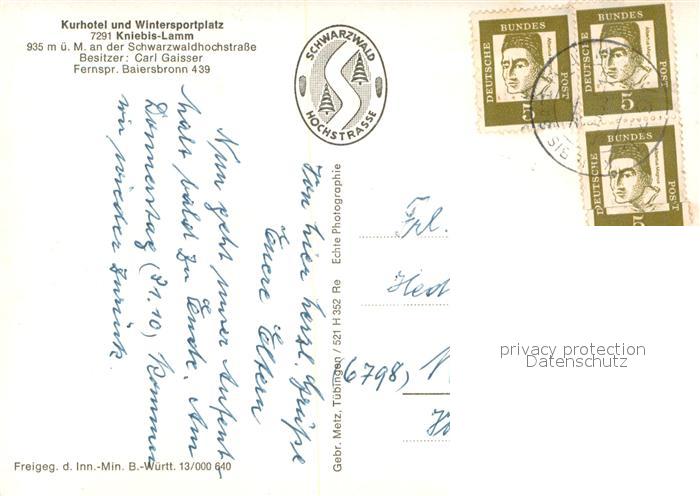 Kurhotel und Wintersportplatz
7291 Kniebis-Lamm
935 m ü. M. an der Schwarzwaldhochstraße
Besitzer: Carl Gaisser
Fernspr. Baiersbronn 439
SCHWARZWALD
HOCHSTRASSE
DEUTSCHE BUNDES POST
5
DEUTSCHE BUNDES POST
5
DEUTSCHE BUNDES POST
5
Von hier herzl. Grüße
Euere Eltern
Nun geht unser Aufent-
halt bald zu Ende. Am
Donnerstag (21.10) kommen
wir wieder zurück
Echte Photographie
Gebr. Metz, Tübingen / 521 H 352 Re
Frl.
(6798)
privacy protection
Datenschutz
Freigeg. d. Inn.-Min. B.-Württ. 13/000 640